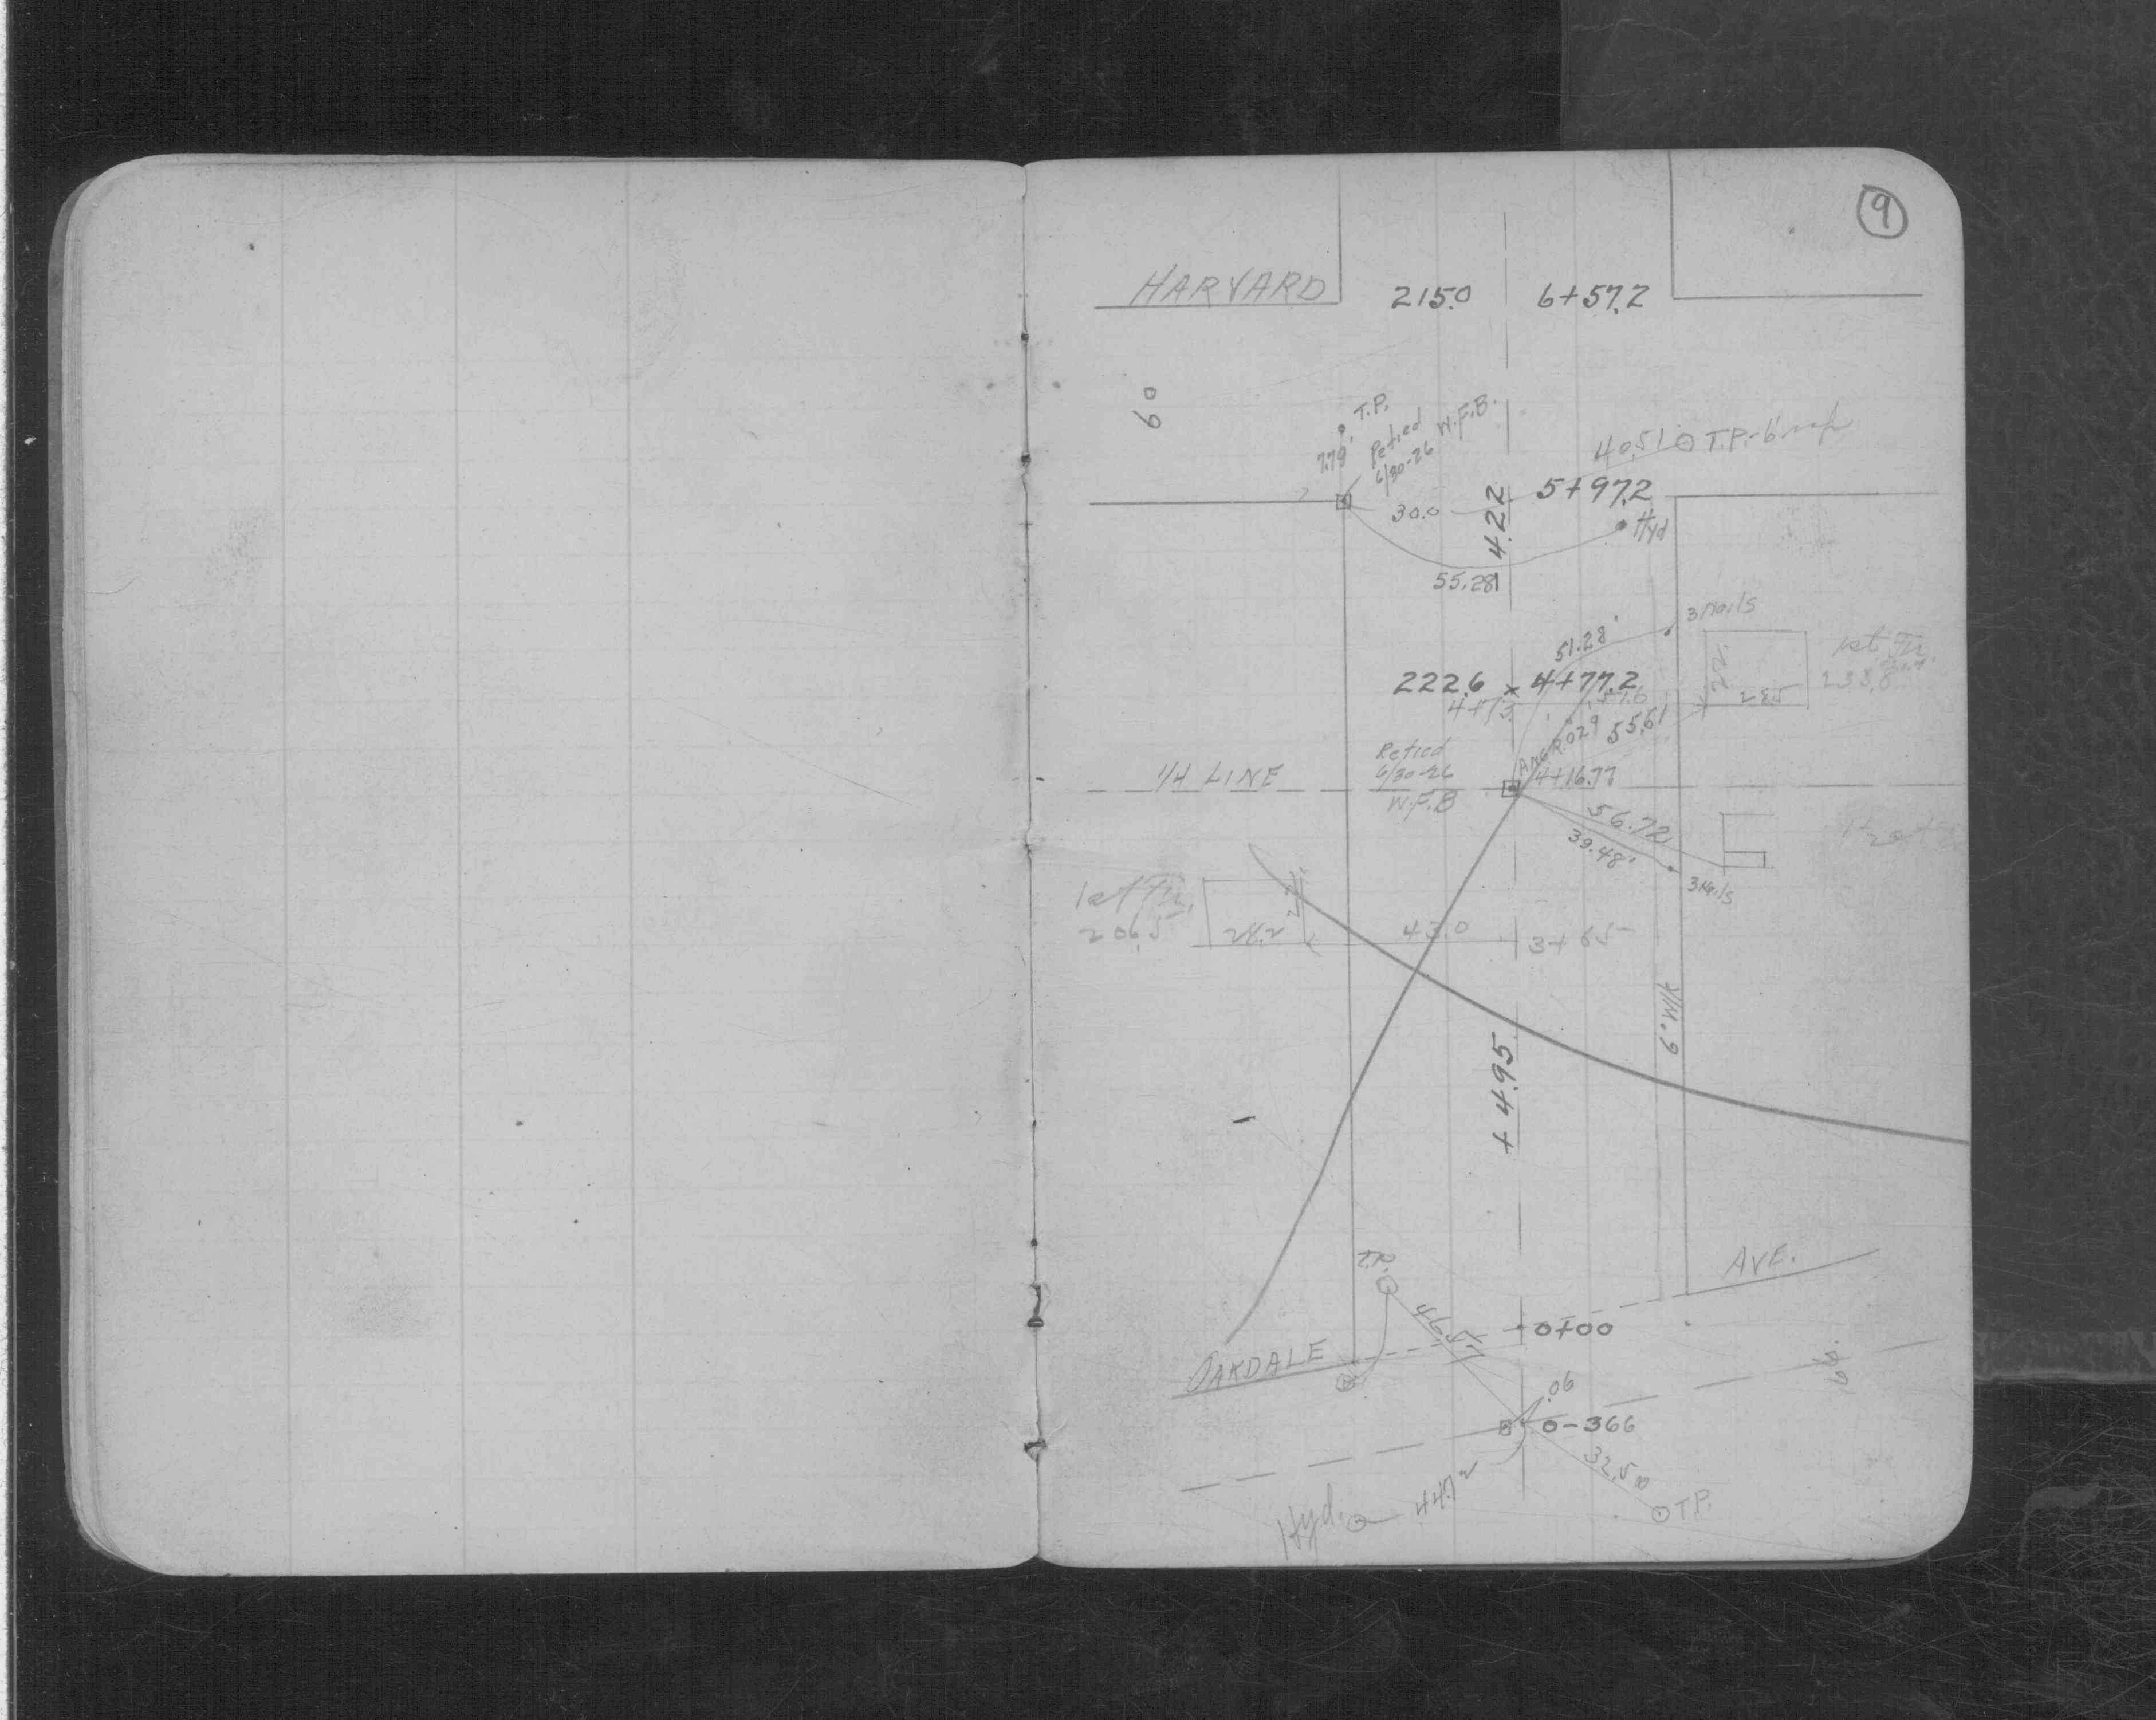 9
HARVARD 215.0 6+57.2
60
T.P.
7.79'
Retied
6/30-26 W.F.B.
40.51 T.P.
5+97.2
30.0
4.22
Hyd
55.28
3 Nails
51.28'
222.6 4+77.2
4+73
57.6
22.
28.5
1st Flr.
233.8
55.61
ANG.R. 029
Retied
6/30-26
W.F.B
1/4 LINE
4+16.77
56.72
39.48'
3 Nails
1st Flr.
206.5
28.2
43.0
3+65
6" Wk
+ 4.95
AVE.
T.P.
46.51
0+00
OAKDALE
66
.06
0-36.6
32.50
44.72
Hyd.
T.P.